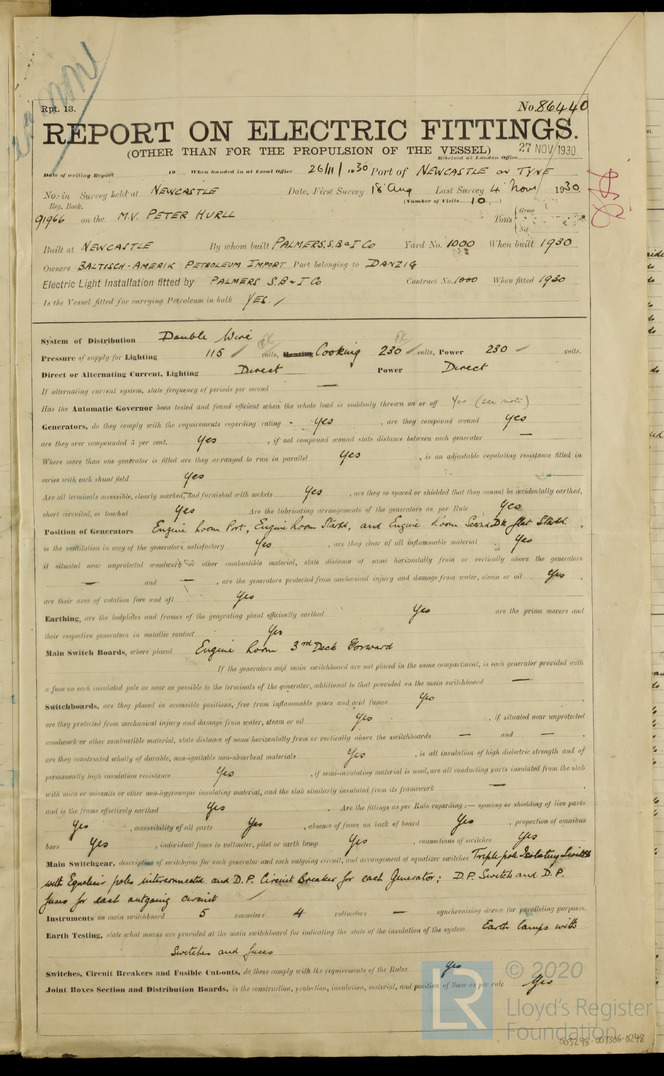 Rpt. 13.
No. 86440
REPORT ON ELECTRIC FITTINGS.
(OTHER THAN FOR THE PROPULSION OF THE VESSEL)
27 NOV 1930
Received at London Office
Date of writing Report 19 When handed in at Local Office 26/11/1930 Port of NEWCASTLE ON TYNE
No. in Survey held at NEWCASTLE Date, First Survey 18 Aug Last Survey 4 Nov 1930
Reg. Book. (Number of Visits 10)
91966 on the M.V. PETER HURLL Tons { Gross
Net
Built at NEWCASTLE By whom built PALMERS, S.B & I Co Yard No. 1000 When built 1930
Owners BALTISCH-AMERIK PETROLEUM IMPORT Port belonging to DANZIG
Electric Light Installation fitted by PALMERS S.B & I Co Contract No. 1000 When fitted 1930
Is the Vessel fitted for carrying Petroleum in bulk YES.
System of Distribution Double Wire
Pressure of supply for Lighting 115 volts, Heating Cooking 230 volts, Power 230 volts.
Direct or Alternating Current, Lighting Direct Power Direct
If alternating current system, state frequency of periods per second —
Has the Automatic Governor been tested and found efficient when the whole load is suddenly thrown on or off Yes (see note)
Generators, do they comply with the requirements regarding rating - Yes , are they compound wound Yes
are they over compounded 5 per cent. Yes , if not compound wound state distance between each generator —
Where more than one generator is fitted are they arranged to run in parallel Yes , is an adjustable regulating resistance fitted in
series with each shunt field Yes
Are all terminals accessible, clearly marked, and furnished with sockets Yes , are they so spaced or shielded that they cannot be accidentally earthed,
short circuited, or touched Yes Are the lubricating arrangements of the generators as per Rule Yes
Position of Generators Engine Room Port, Engine Room Starbd, and Engine Room Dk flat Starbd.
is the ventilation in way of the generators satisfactory Yes , are they clear of all inflammable material Yes
if situated near unprotected woodwork or other combustible material, state distance of same horizontally from or vertically above the generators
— and — , are the generators protected from mechanical injury and damage from water, steam or oil Yes ,
are their axes of rotation fore and aft Yes
Earthing, are the bedplates and frames of the generating plant efficiently earthed Yes are the prime movers and
their respective generators in metallic contact Yes
Main Switch Boards, where placed Engine Room 3rd Deck Forward
If the generators and main switchboard are not placed in the same compartment, is each generator provided with
a fuse on each insulated pole as near as possible to the terminals of the generator, additional to that provided on the main switchboard —
Switchboards, are they placed in accessible positions, free from inflammable gases and acid fumes Yes ,
are they protected from mechanical injury and damage from water, steam or oil Yes , if situated near unprotected
woodwork or other combustible material, state distance of same horizontally from or vertically above the switchboards — and — ,
are they constructed wholly of durable, non-ignitable non-absorbent materials Yes , is all insulation of high dielectric strength and of
permanently high insulation resistance Yes , if semi-insulating material is used, are all conducting parts insulated from the slab
with mica or micanite or other non-hygroscopic insulating material, and the slab similarly insulated from its framework — ,
and is the frame effectively earthed Yes . Are the fittings as per Rule regarding :— spacing or shielding of live parts
Yes , accessibility of all parts Yes , absence of fuses on back of board Yes , proportion of omnibus
bars Yes , individual fuses to voltmeter, pilot or earth lamp Yes , connections of switches Yes
Main Switchgear, description of switchgear for each generator and each outgoing circuit, and arrangement of equalizer switches Triple pole Isolating Switch
with Equaliser poles interconnected and D.P. Circuit Breaker for each Generator; D.P. Switch and D.P.
fuses for each outgoing circuit
Instruments on main switchboard 5 ammeters 4 voltmeters — synchronising device for paralleling purposes.
Earth Testing, state what means are provided at the main switchboard for indicating the state of the insulation of the system Earth lamps with
Switches and fuses
Switches, Circuit Breakers and Fusible Cut-outs, do these comply with the requirements of the Rules Yes
Joint Boxes Section and Distribution Boards, is the construction, protection, insulation, material, and position of these as per rule Yes
LR
© 2020
Lloyd's Register
Foundation
003298-003306-0248